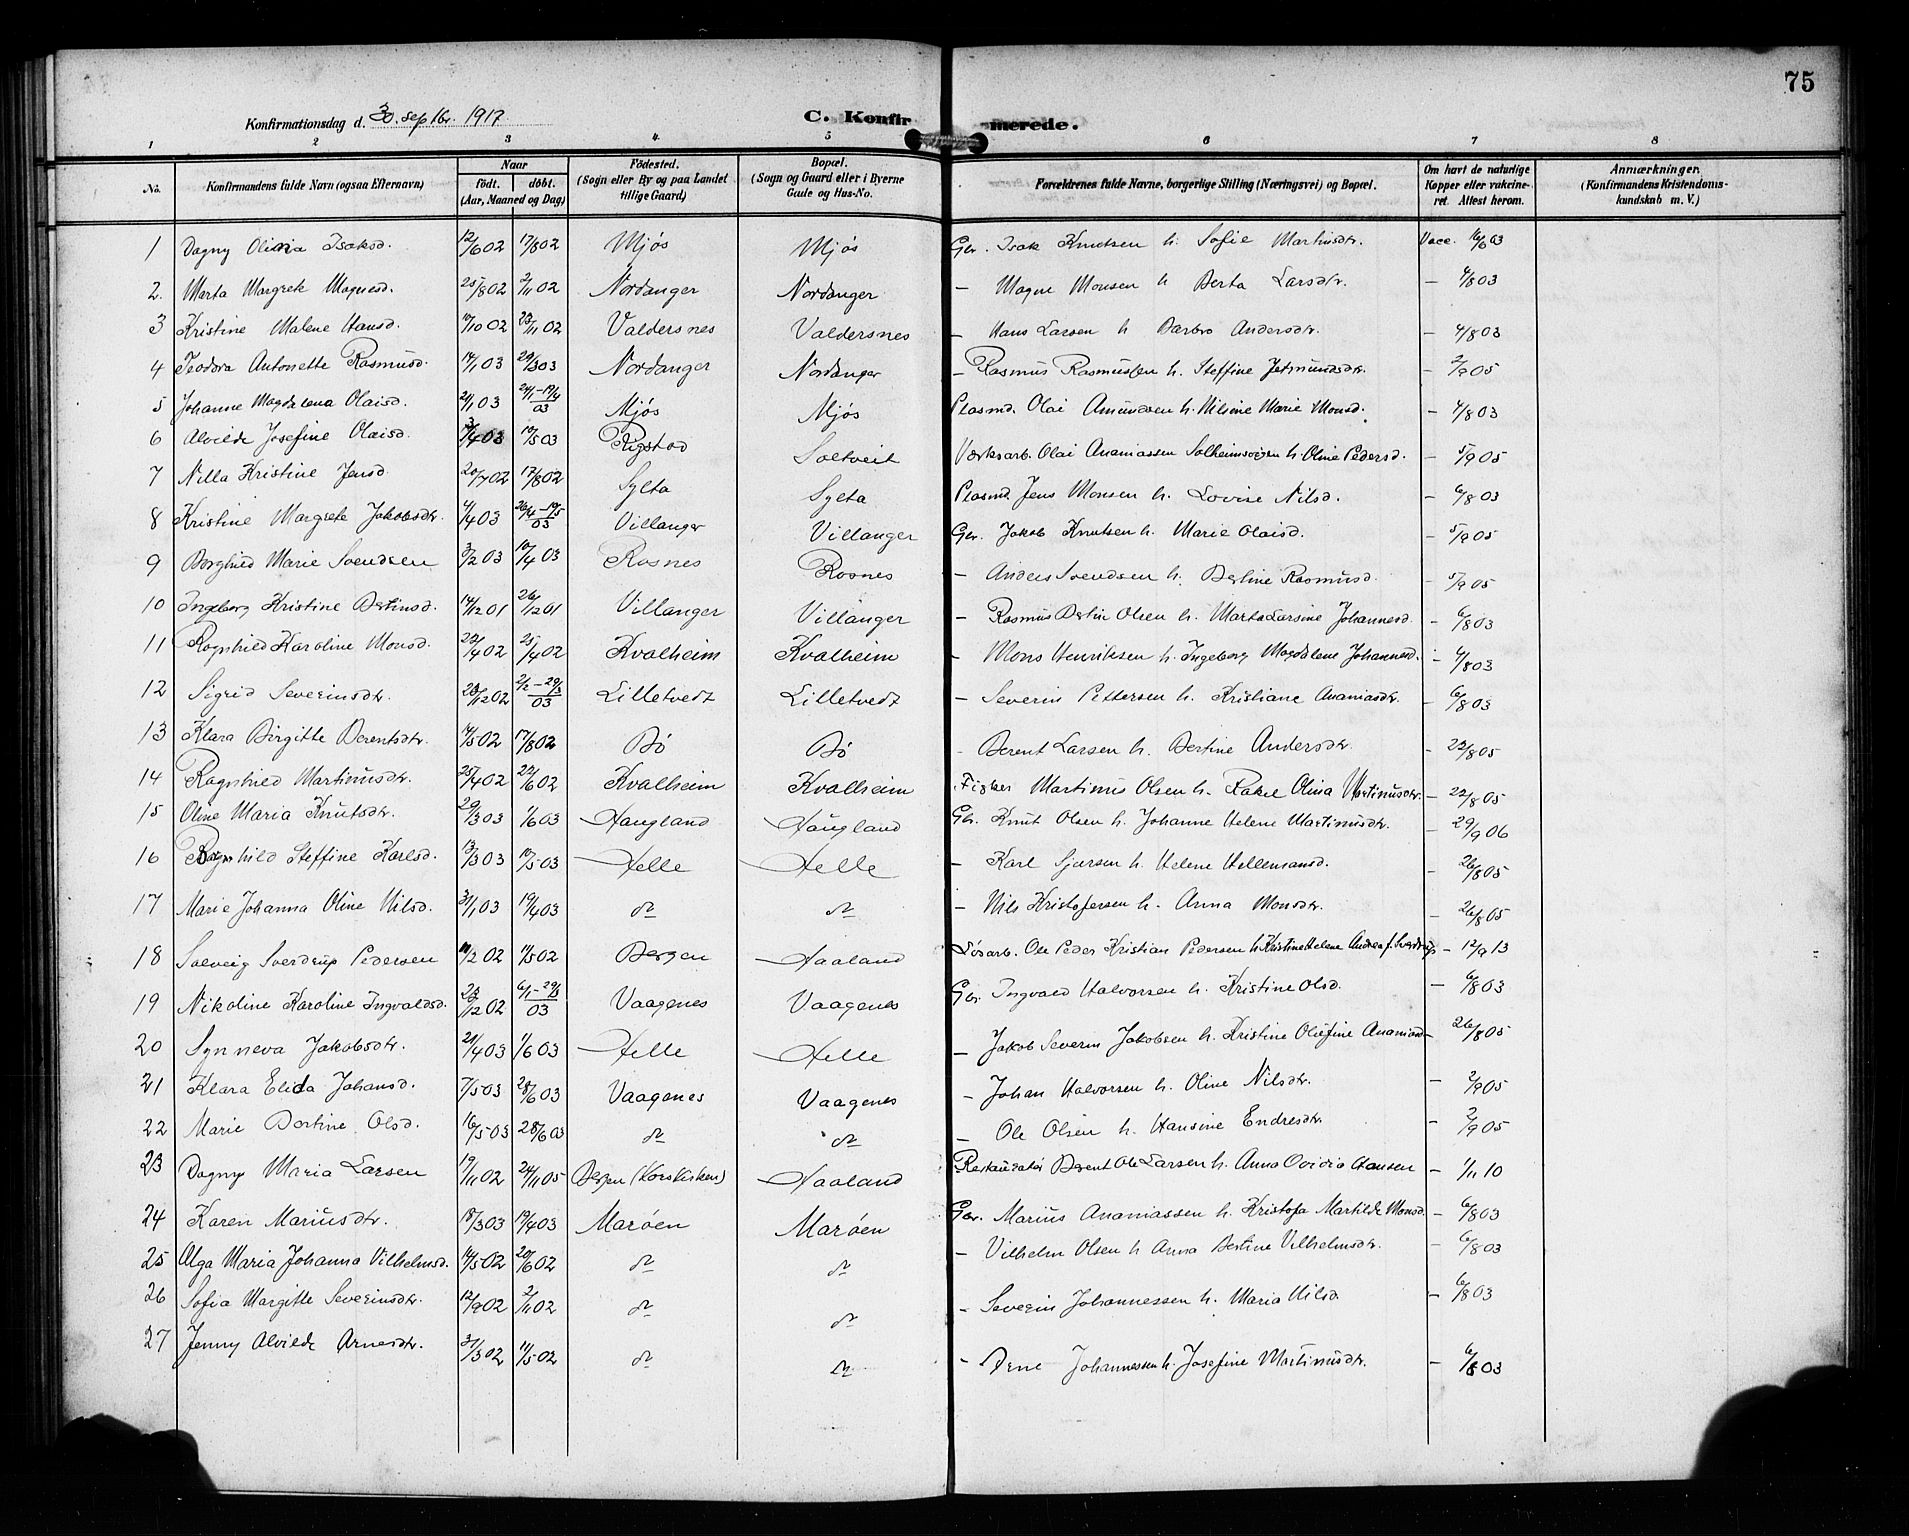 75
Konfirmationsdag d. 30. septbr. 1917.
C. Konfirmerede.
1 2 3 4. 5 6 7 8
No. Konfirmandens fulde Navn (ogsaa Efternavn) Naar födt. döbt. (Aar, Maaned og Dag) Födested. (Sogn eller By og paa Landet tillige Gaard) Bopæl. (Sogn og Gaard eller i Byerne Gade og Hus-No. Forældrenes fulde Navne, borgerlige Stilling (Næringsvei) og Bopæl. Om havt de naturlige Kopper eller vakcineret. Attest herom. Anmærkninger. (Konfirmandens Kristendomskundskab m. V.)
1 Dagny Olina Isaksd. 12/6 02 17/8 02 Mjøs Mjøs Gbr. Isak Knutsen h. Sofie Martinsdtr. Vacc. 16/6 03
2. Marta Margrete Magnesd. 25/8 02 2/11 02 Nordanger Nordanger – Magne Monsen h. Berta Larsdtr. – 4/8 03
3 Kristine Malene Hansd. 17/10 02 23/11 02 Valdersnes Valdersnes – Hans Larsen h. Barbro Andersdtr. – 4/8 03
4 Teodora Antonette Rasmusd. 14/1 03 29/3 03 Nordanger Nordanger – Rasmus Rasmussen h. Steffine Jetmundsdtr. – 2/9 05
5 Johanne Magdalena Olaisd. 21/1 03 24/1–19/4 03 Mjøs Mjøs Plasmd. Olai Amundsen h. Nilsine Marie Monsd. – 4/8 03
6 Alvilde Josefine Olaisd. 3/4 03 10/5 03 Rigstad Saltveit Værksarb. Olai Ananiassen Solheimsvigen h. Oline Pedersd. – 5/9 05
7 Nilla Kristine Jensd. 20/7 02 17/8 02 Sylta Sylta Plasmd. Jens Monsen h. Lovise Nilsd. – 6/8 03
8 Kristine Margrete Jakobsdtr. 4/4 03 26/4–10/5 03 Villanger Villanger Gbr. Jakob Knutsen h. Marie Olaisd. – 5/9 05
9 Borghild Marie Svendsen 3/2 03 10/4 03 Rosnes Rosnes – Anders Svendsen h. Bertine Rasmusd. – 5/9 05
10 Ingeborg Kristine Bertinsd. 14/12 01 26/12 01 Villanger Villanger – Rasmus Bertin Olsen h. Marta Larsine Johannesd. – 6/8 03
11 Ragnhild Karoline Monsd. 22/4 02 25/4 02 Kvalheim Kvalheim – Mons Henriksen h. Ingeborg Magdalene Johannesd. – 4/8 03
12 Sigrid Severinsdtr. 23/12 02 2/2–29/3 03 Lilletvedt Lilletvedt – Severin Pettersen h. Kristiane Ananiasdtr. – 6/8 03
13 Klara Birgitte Berentsdtr. 14/5 02 17/8 02 Bö Bö – Berent Larsen h. Bertine Andersdtr. – 22/8 05
14 Ragnhild Martinusdtr. 25/4 02 22/6 02 Kvalheim Kvalheim Fisker Martinus Olsen h. Rakel Olina Martinusdtr. – 22/8 05
15 Oline Maria Knutsdtr. 29/3 03 1/6 03 Haugland Haugland Gbr. Knut Olsen h. Johanne Helene Martinusdtr. – 29/9 06
16 Ragnhild Steffine Karlsd. 13/3 03 10/5 03 Helle Helle – Karl Sjursen h. Helene Hellemansd. – 26/8 05
17 Marie Johanna Oline Nilsd. 31/1 03 19/4 03 do do – Nils Kristofersen h. Anna Monsdtr. – 26/8 05
18 Solveig Sverdrup Pedersen 11/2 02 11/5 02 Bergen Haaland Løsarb. Ole Peder Kristian Pedersen h. Kristine Helene Andrea f. Sverdrup – 12/9 13
19 Nikoline Karoline Ingvaldsd. 23/12 02 6/1–29/3 03 Vaagenes Vaagenes Gbr. Ingvald Halvorsen h. Kristine Olsd. – 6/8 03
20 Synneva Jakobsdtr. 21/4 03 1/6 03 Helle Helle – Jakob Severin Jakobsen h. Kristine Olufine Ananiasd – 26/8 05
21 Klara Elida Johansd. 7/5 03 28/6 03 Vaagenes Vaagenes – Johan Halvorsen h. Oline Nilsdtr. – 2/9 05
22 Marie Bertine Olsd. 16/5 03 28/6 03 do do – Ole Olsen h. Hansine Endresdtr. – 2/9 05
23 Dagny Maria Larsen 19/11 02 24/11 05 Bergen (Korskirken) Haaland Restauratør Berent Ole Larsen h. Anna Ovidia Hansen – 1/11 10
24 Karen Mariusdtr. 18/3 03 19/4 03 Marøen Marøen Gbr. Marius Ananiassen h. Kristofa Martilde Monsd. – 6/8 03
25 Alga Maria Johanna Vilhelmsd. 14/5 02 20/6 02 do do – Vilhelm Olsen h. Anna Bertine Vilhelmsdtr. – 6/8 03
26 Sofia Margitte Severinsdtr. 12/9 02 2/11 02 do do – Severin Johannessen h. Maria Nilsd – 6/8 03
27 Jenny Alvilde Arnesdtr. 31/3 02 11/5 02 do do – Arne Johannessen h. Josefine Martinusdtr. – 6/8 03